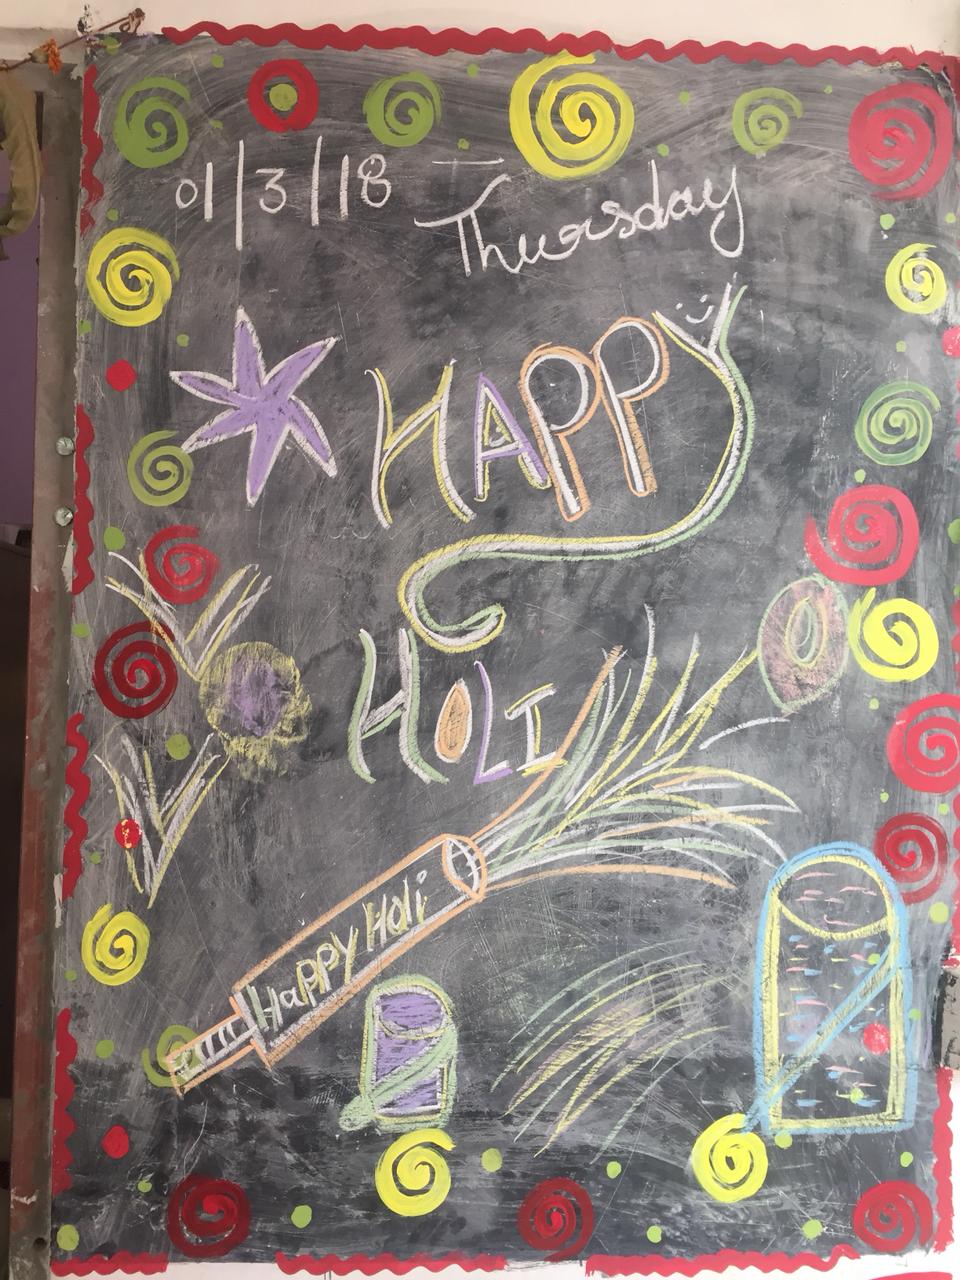 01/3/18 Thursday
HAPPY
HOLI
Happy Holi